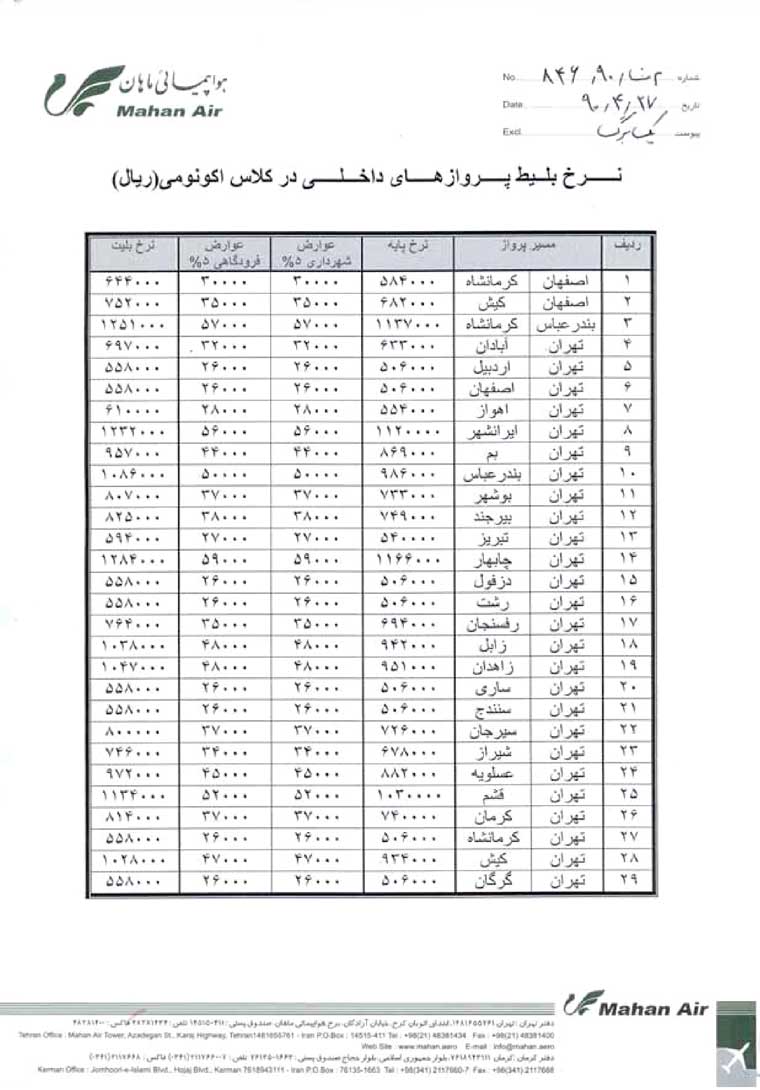 هواپیمائی ماهان
Mahan Air
شماره م ش/۹۰/۸۴۶ No
تاریخ ۹۰/۴/۲۷ Date
پیوست یک برگ Excl.
نرخ بلیط پروازهای داخلی در کلاس اکونومی(ریال)
ردیف مسیر پرواز نرخ پایه عوارض شهرداری ۵% عوارض فرودگاهی ۵% نرخ بلیت
۱ اصفهان کرمانشاه ۵۸۴۰۰۰ ۳۰۰۰۰ ۳۰۰۰۰ ۶۴۴۰۰۰
۲ اصفهان کیش ۶۸۲۰۰۰ ۳۵۰۰۰ ۳۵۰۰۰ ۷۵۲۰۰۰
۳ بندرعباس کرمانشاه ۱۱۳۷۰۰۰ ۵۷۰۰۰ ۵۷۰۰۰ ۱۲۵۱۰۰۰
۴ تهران آبادان ۶۳۳۰۰۰ ۳۲۰۰۰ ۳۲۰۰۰ ۶۹۷۰۰۰
۵ تهران اردبیل ۵۰۶۰۰۰ ۲۶۰۰۰ ۲۶۰۰۰ ۵۵۸۰۰۰
۶ تهران اصفهان ۵۰۶۰۰۰ ۲۶۰۰۰ ۲۶۰۰۰ ۵۵۸۰۰۰
۷ تهران اهواز ۵۵۴۰۰۰ ۲۸۰۰۰ ۲۸۰۰۰ ۶۱۰۰۰۰
۸ تهران ایرانشهر ۱۱۲۰۰۰۰ ۵۶۰۰۰ ۵۶۰۰۰ ۱۲۳۲۰۰۰
۹ تهران بم ۸۶۹۰۰۰ ۴۴۰۰۰ ۴۴۰۰۰ ۹۵۷۰۰۰
۱۰ تهران بندرعباس ۹۸۶۰۰۰ ۵۰۰۰۰ ۵۰۰۰۰ ۱۰۸۶۰۰۰
۱۱ تهران بوشهر ۷۳۳۰۰۰ ۳۷۰۰۰ ۳۷۰۰۰ ۸۰۷۰۰۰
۱۲ تهران بیرجند ۷۴۹۰۰۰ ۳۸۰۰۰ ۳۸۰۰۰ ۸۲۵۰۰۰
۱۳ تهران تبریز ۵۴۰۰۰۰ ۲۷۰۰۰ ۲۷۰۰۰ ۵۹۴۰۰۰
۱۴ تهران چابهار ۱۱۶۶۰۰۰ ۵۹۰۰۰ ۵۹۰۰۰ ۱۲۸۴۰۰۰
۱۵ تهران دزفول ۵۰۶۰۰۰ ۲۶۰۰۰ ۲۶۰۰۰ ۵۵۸۰۰۰
۱۶ تهران رشت ۵۰۶۰۰۰ ۲۶۰۰۰ ۲۶۰۰۰ ۵۵۸۰۰۰
۱۷ تهران رفسنجان ۶۹۴۰۰۰ ۳۵۰۰۰ ۳۵۰۰۰ ۷۶۴۰۰۰
۱۸ تهران زابل ۹۴۲۰۰۰ ۴۸۰۰۰ ۴۸۰۰۰ ۱۰۳۸۰۰۰
۱۹ تهران زاهدان ۹۵۱۰۰۰ ۴۸۰۰۰ ۴۸۰۰۰ ۱۰۴۷۰۰۰
۲۰ تهران ساری ۵۰۶۰۰۰ ۲۶۰۰۰ ۲۶۰۰۰ ۵۵۸۰۰۰
۲۱ تهران سنندج ۵۰۶۰۰۰ ۲۶۰۰۰ ۲۶۰۰۰ ۵۵۸۰۰۰
۲۲ تهران سیرجان ۷۲۶۰۰۰ ۳۷۰۰۰ ۳۷۰۰۰ ۸۰۰۰۰۰
۲۳ تهران شیراز ۶۷۸۰۰۰ ۳۴۰۰۰ ۳۴۰۰۰ ۷۴۶۰۰۰
۲۴ تهران عسلویه ۸۸۲۰۰۰ ۴۵۰۰۰ ۴۵۰۰۰ ۹۷۲۰۰۰
۲۵ تهران قشم ۱۰۳۰۰۰۰ ۵۲۰۰۰ ۵۲۰۰۰ ۱۱۳۴۰۰۰
۲۶ تهران کرمان ۷۴۰۰۰۰ ۳۷۰۰۰ ۳۷۰۰۰ ۸۱۴۰۰۰
۲۷ تهران کرمانشاه ۵۰۶۰۰۰ ۲۶۰۰۰ ۲۶۰۰۰ ۵۵۸۰۰۰
۲۸ تهران کیش ۹۳۴۰۰۰ ۴۷۰۰۰ ۴۷۰۰۰ ۱۰۲۸۰۰۰
۲۹ تهران گرگان ۵۰۶۰۰۰ ۲۶۰۰۰ ۲۶۰۰۰ ۵۵۸۰۰۰
Mahan Air
دفتر تهران : تهران ۱۴۸۱۶۵۵۷۶۱، ابتدای اتوبان کرج، خیابان آزادگان، برج هواپیمائی ماهان، صندوق پستی : ۴۱۱-۱۴۵۱۵ تلفن : ۴۸۳۸۱۴۳۴ فاکس : ۴۸۳۸۱۴۰۰
Tehran Office : Mahan Air Tower, Azadegan St., Karaj Highway, Tehran1481655761 - Iran P.O.Box : 14515-411 Tel : +98(21) 48381434 Fax : +98(21) 48381400
Web Site : www.mahan.aero E-mail : info@mahan.aero
دفتر کرمان : کرمان ۷۶۱۸۹۴۳۱۱۱، بلوار جمهوری اسلامی، بلوار حجاج صندوق پستی : ۱۶۶۳-۷۶۱۳۵ تلفن : ۷-۲۱۱۷۶۶۰ (۰۳۴۱) فاکس : ۲۱۱۷۶۶۸ (۰۳۴۱)
Kerman Office : Jomhoori-e-Islami Blvd., Hojaj Blvd., Kerman 7618943111 - Iran P.O.Box : 76135-1663 Tel : +98(341) 2117660-7 Fax : +98(341) 2117668